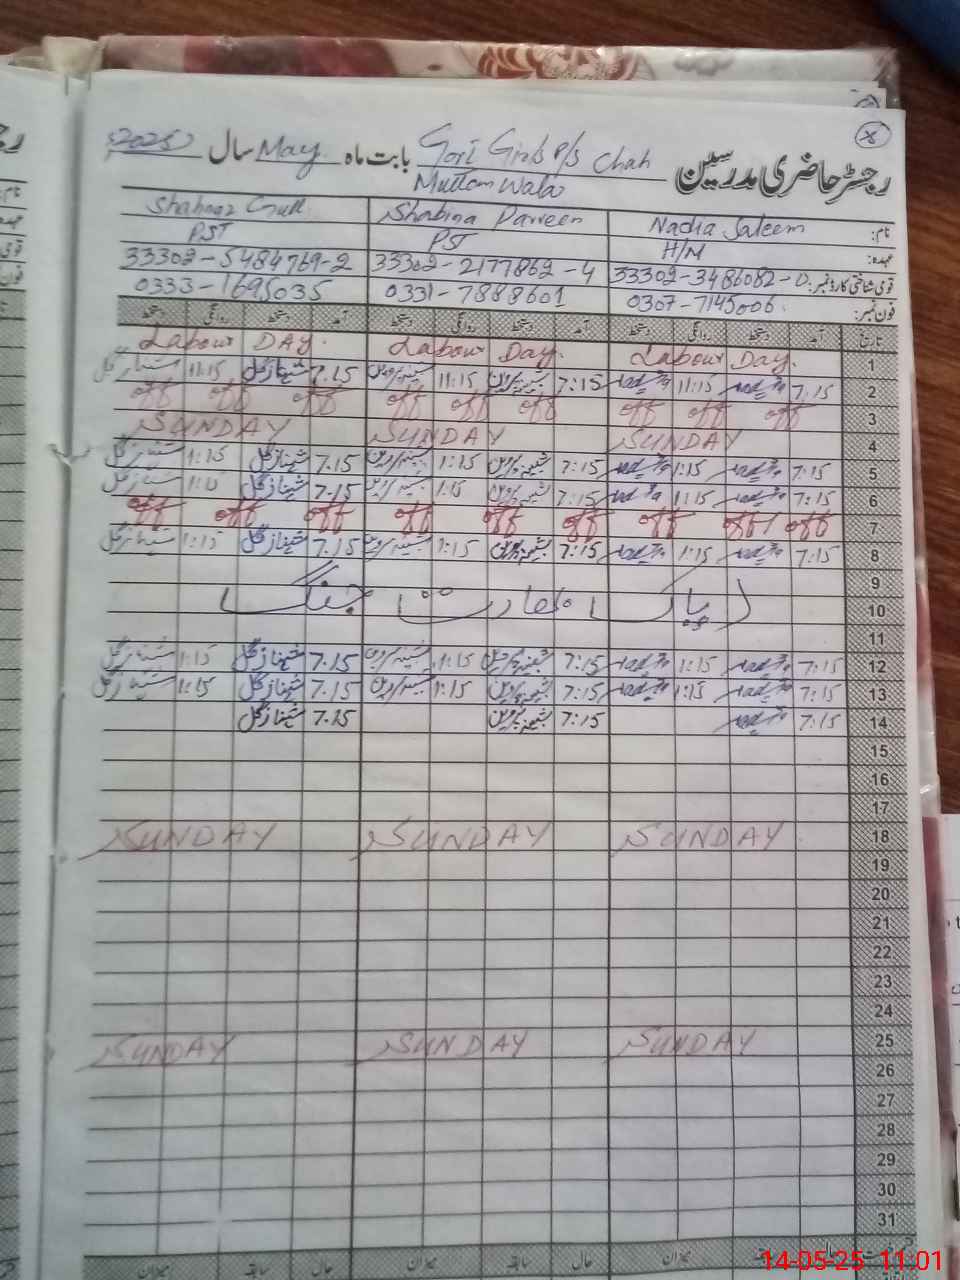 رجسٹر حاضری مدرسین Govt Girls P/S Chah بابت ماہ May سال 2025
نام: Nadia Saleem Shabina Parveen Shahnaz Gull
عہدہ: H/M PST PST
قومی شناختی کارڈ نمبر: 33302-3486082-0 33302-2177862-4 33302-5484769-2
فون نمبر: 0307-7145006 0331-7888601 0333-1695035
تاریخ آمد دستخط روانگی دستخط آمد دستخط روانگی دستخط آمد دستخط روانگی دستخط
1 Labour Day. Labour Day. Labour DAY.
2 7:15 11:15 7:15 شبینہ پروین 11:15 شبینہ پروین 7.15 شہناز گل 11:15 شہناز گل
3 off off off off off off off off off
4 SUNDAY SUNDAY SUNDAY
5 7:15 1:15 7:15 شبینہ پروین 1:15 شبینہ پروین 7.15 شہناز گل 1:15 شہناز گل
6 7:15 1:15 7:15 شبینہ پروین 1:15 شبینہ پروین 7.15 شہناز گل 1:15 شہناز گل
7 off off off off off off off off off
8 7:15 1:15 7:15 شبینہ پروین 1:15 شبینہ پروین 7.15 شہناز گل 1:15 شہناز گل
9
10 پاک بھارت جنگ
11
12 7:15 1:15 7:15 شبینہ پروین 1:15 شبینہ پروین 7.15 شہناز گل 1:15 شہناز گل
13 7:15 1:15 7:15 شبینہ پروین 1:15 شبینہ پروین 7.15 شہناز گل 1:15 شہناز گل
14 7:15 7:15 شبینہ پروین 7.15 شہناز گل
15
16
17
18 SUNDAY SUNDAY SUNDAY
19
20
21
22
23
24
25 SUNDAY SUNDAY SUNDAY
26
27
28
29
30
31
حال میزان سابقہ حال میزان سابقہ
14-05-25 11:01